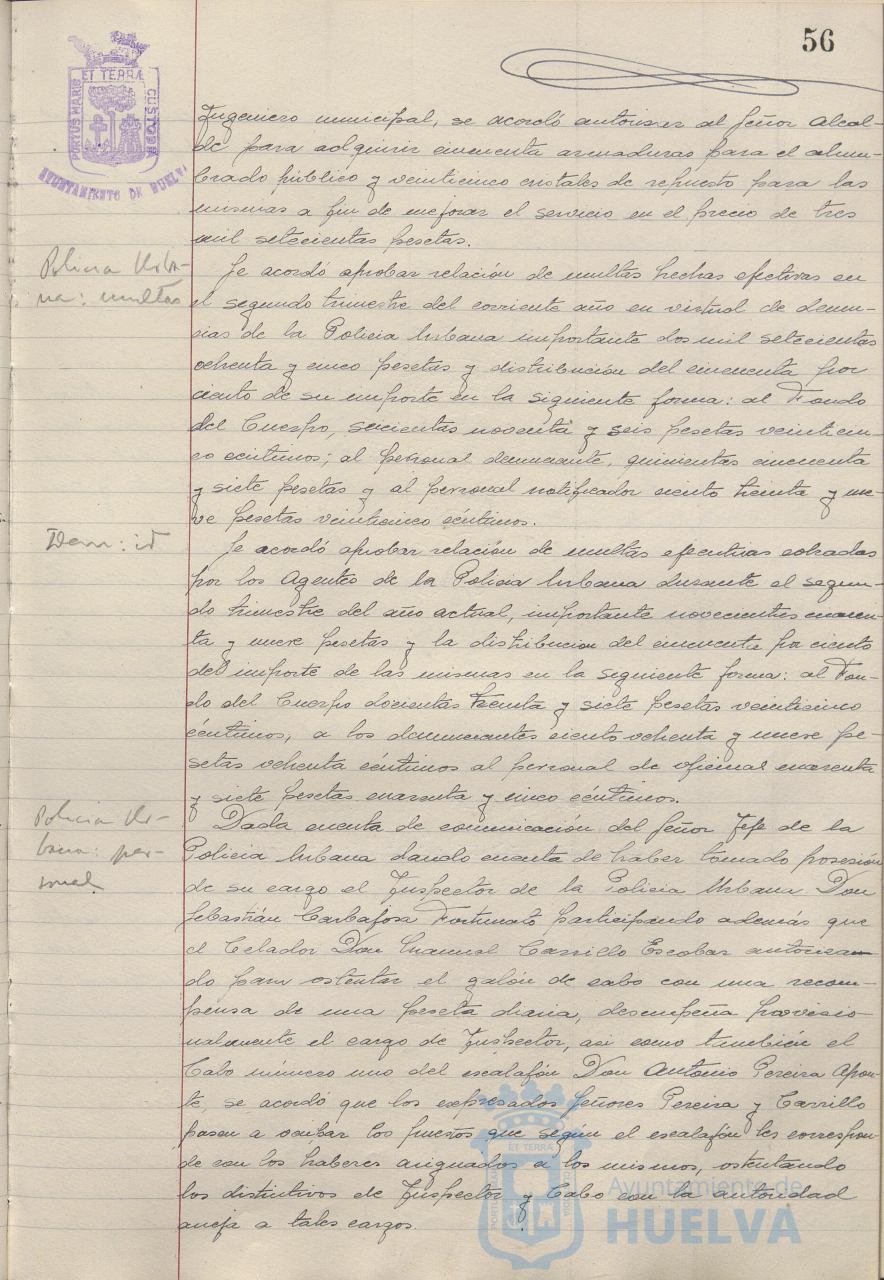 56
PORTUS MARIS ET TERRÆ CUSTODIA
AYUNTAMIENTO DE HUELVA
Ingeniero municipal, se acordó autorizar al Señor Alcal-
de para adquirir cincuenta armaduras para el alum-
brado público y veinticinco cristales de repuesto para las
mismas a fin de mejorar el servicio en el precio de tres
mil setecientas pesetas.
Policia Urba-
na: multas
Se acordó aprobar relación de multas hechas efectivas en
el segundo trimestre del corriente año en virtud de denun-
cias de la Policia Urbana importante dos mil setecientas
ochenta y cinco pesetas y distribución del cincuenta por
ciento de su importe en la siguiente forma: al Fondo
del Cuerpo, seiscientas noventa y seis pesetas veinticin-
co centimos; al personal denunciante, quinientas cincuenta
y siete pesetas y al personal notificador ciento treinta y nue-
ve pesetas veinticinco céntimos.
Idem: id
Se acordó aprobar relación de multas efectivas cobradas
por los Agentes de la Policia Urbana durante el segun-
do trimestre del año actual, importante novecientas cuaren-
ta y nueve pesetas y la distribucion del cincuenta por ciento
del importe de las mismas en la siguiente forma: al Fon-
do del Cuerpo doscientas treinta y siete pesetas veinticinco
céntimos, a los denunciantes ciento ochenta y nueve pe-
setas ochenta céntimos al personal de oficinal cuarenta
y siete pesetas cuarenta y cinco céntimos.
Policia Ur-
bana: per-
sonal
Dada cuenta de comunicación del Señor Jefe de la
Policia Urbana dando cuenta de haber tomado posesión
de su cargo el Inspector de la Policia Urbana Don
Sebastián Carbajosa Fortunato participando además que
el Celador Don Manuel Carrillo Escobar autoriza-
do para ostentar el galón de cabo con una recom-
pensa de una peseta diaria, desempeña provisio-
nalmente el cargo de Inspector, asi como tambien el
Cabo número uno del escalafón Don Antonio Pereira Apon-
te, se acordó que los expresados Señores Pereira y Carrillo
pasen a ocupar los puestos que según el escalafón les correspon-
de con los haberes asignados a los mismos, ostentando
los distintivos de Inspector y Cabo con la autoridad
aneja a tales cargos.
Ayuntamiento de
HUELVA